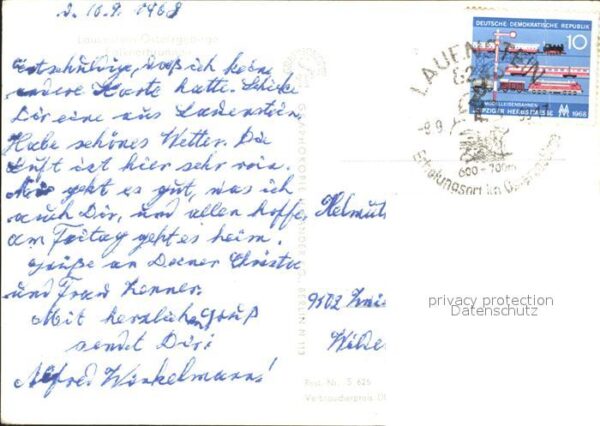 d. 10.9. 1968
Entschuldige, daß ich keine
andere Karte hatte. Schicke
Dir eine aus Lauenstein.
Habe schönes Wetter. Die
Luft ist hier sehr rein.
Mir geht es gut, was ich
auch Dir, und allen hoffe,
am Freitag geht es heim.
Grüße an Deener Christa
und Frau Henner.
Mit herzlichen Gruß
sendet Dir:
Alfred Winkelmann!
DEUTSCHE DEMOKRATISCHE REPUBLIK
10
MODELLEISENBAHNEN
LEIPZIGER HERBSTMESSE
1968
LAUENSTEIN
-9.9.
600-700m
Erholungsort im Osterzgebirge
Helmut
9102
Wilde
privacy protection
Datenschutz
BERLIN N 113
Best. Nr. S 625
Verbraucherpreis